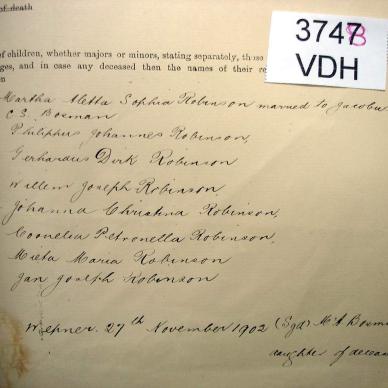 of death
3747
8
VDH
of children, whether majors or minors, stating separately, those
ges, and in case any deceased then the names of their re
n
Martha Aletta Sophia Robinson married to Jacobus
C.S. Bosman
Philiphus Johannes Robinson,
Gerhardus Dirk Robinson
Willem Joseph Robinson,
Johanna Christina Robinson,
Cornelia Petronella Robinson,
Mieta Maria Robinson
Jan Joseph Robinson
Wepner. 27th November 1902 (Sgd) M A Bosma
daughter of deceas